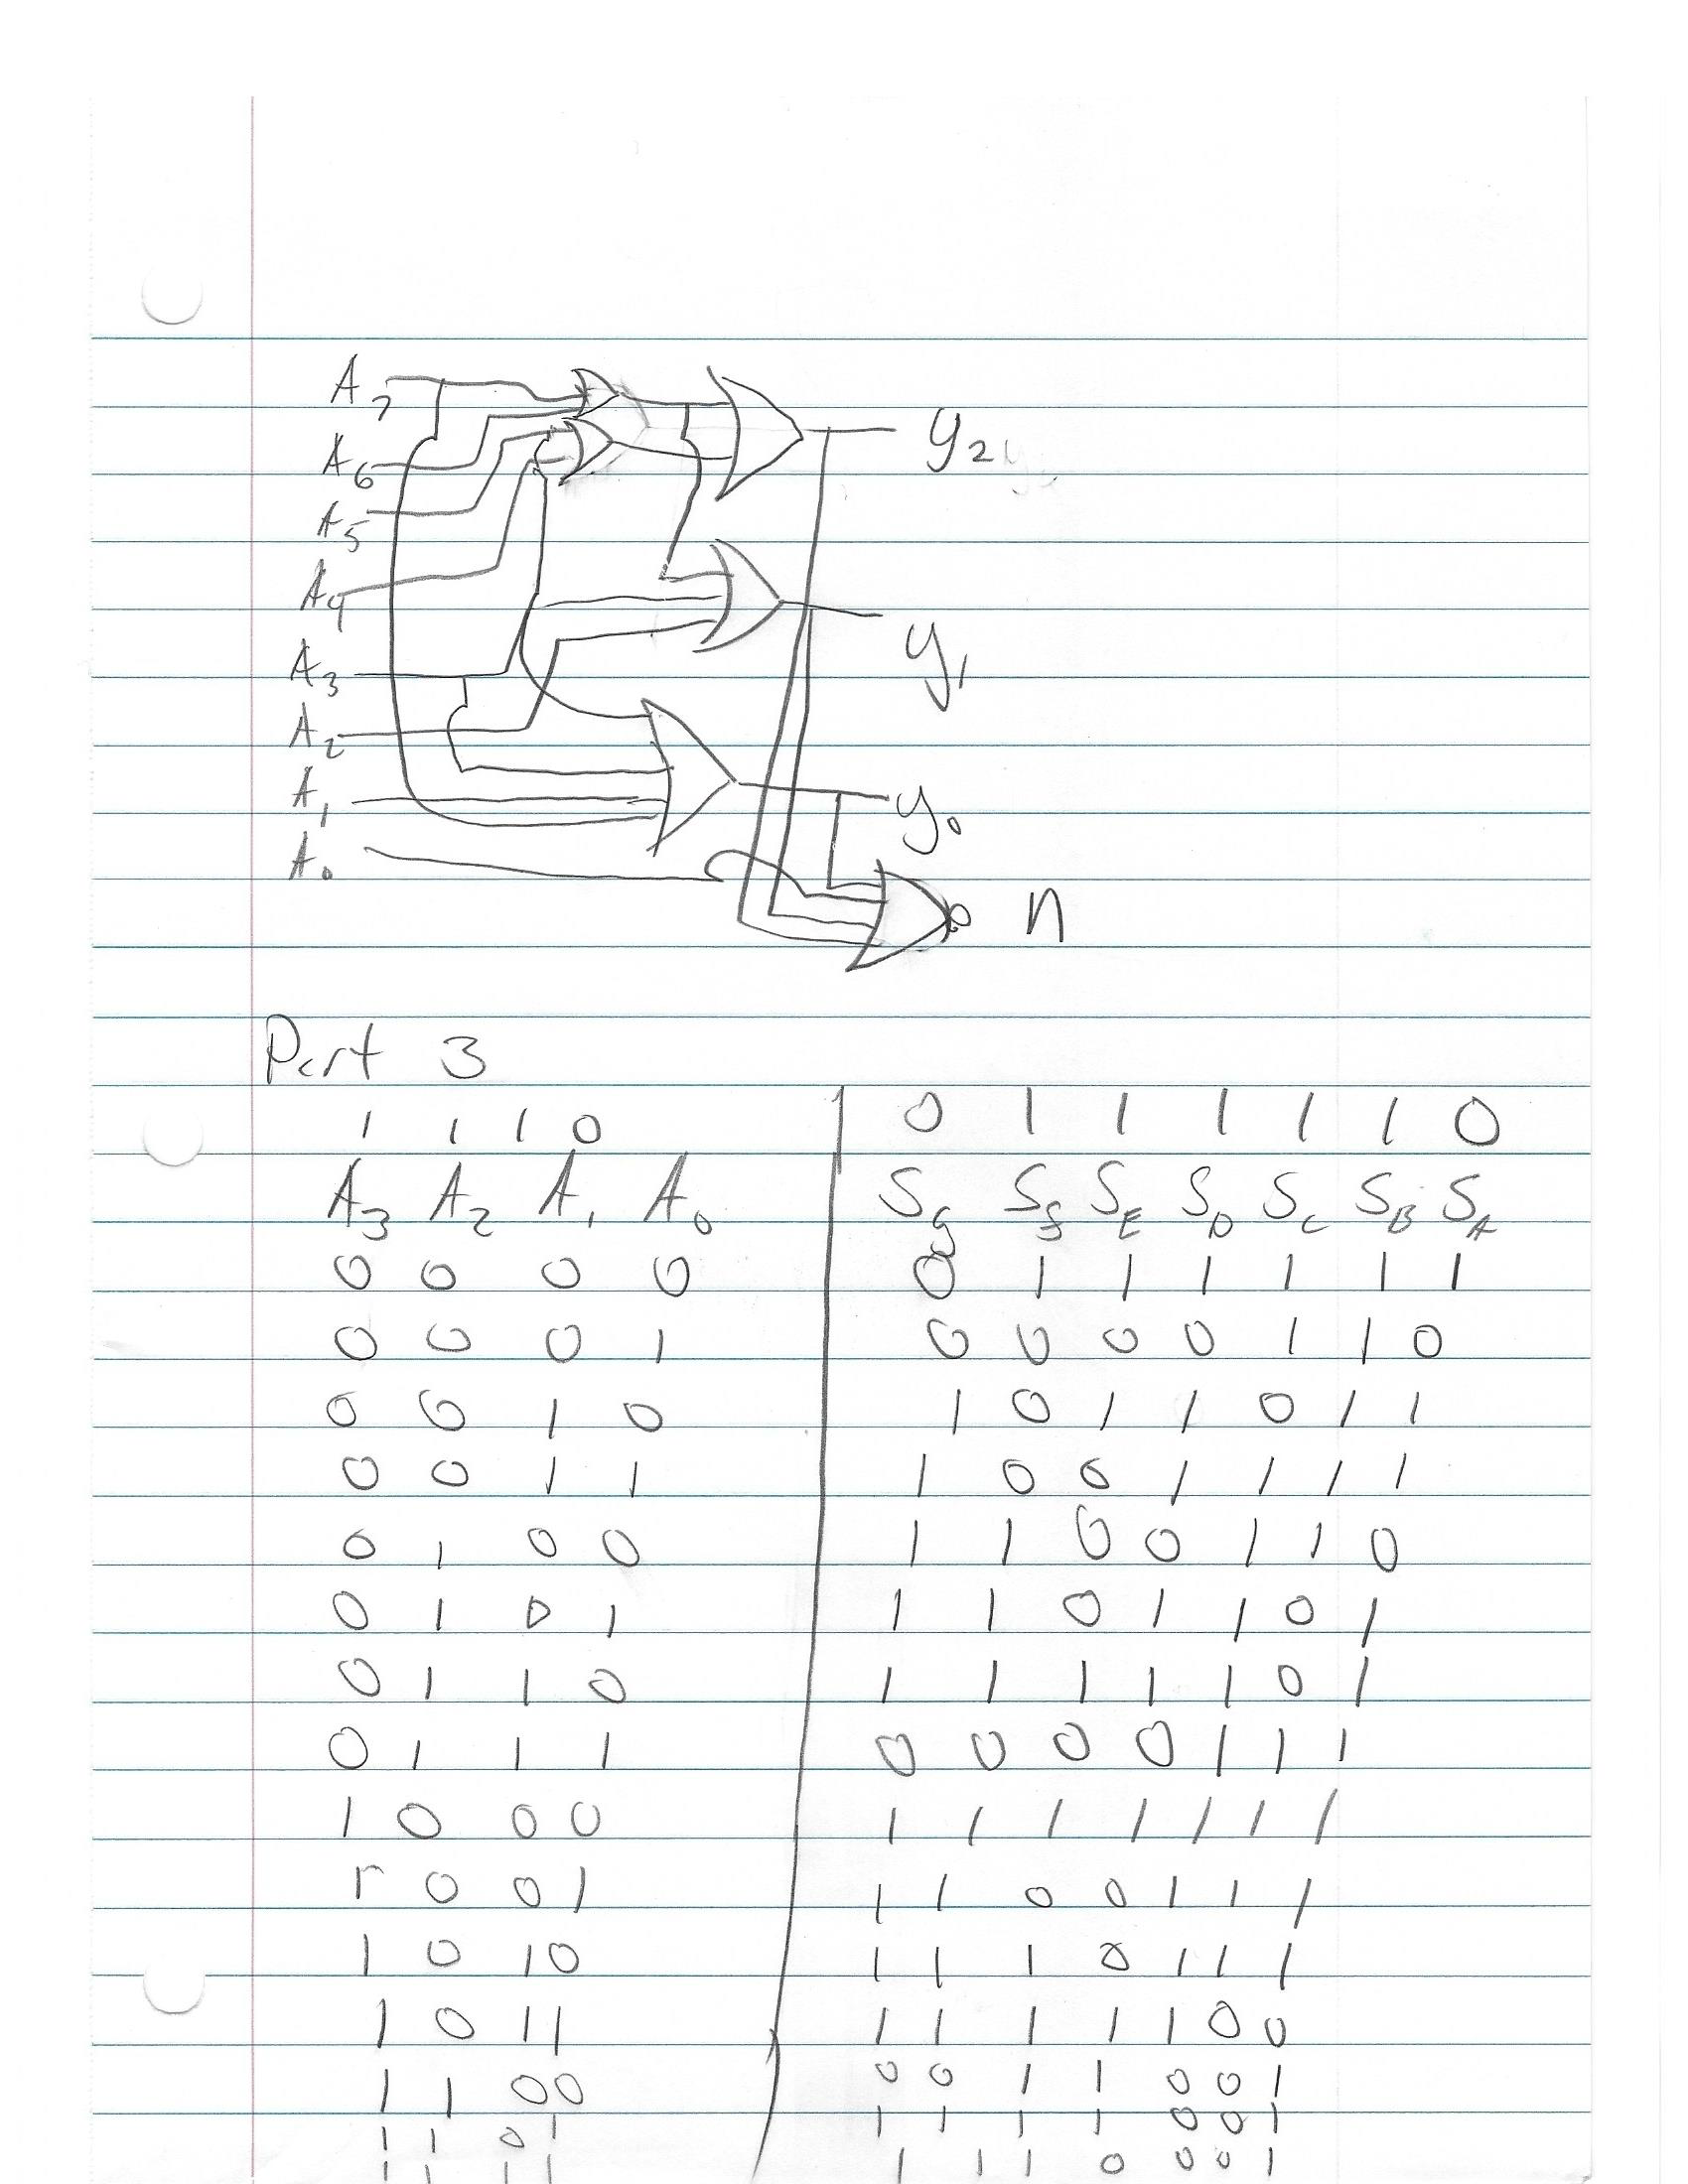 A7
y2
A6
A5
A4
A3
y1
A2
A1
y0
A0
n
Part 3
1 1 1 0 | 0 1 1 1 1 1 0
A3 A2 A1 A0 | Sg Sf SE SD SC SB SA
0 0 0 0 | 0 1 1 1 1 1 1
0 0 0 1 | 0 0 0 0 1 1 0
0 0 1 0 | 1 0 1 1 0 1 1
0 0 1 1 | 1 0 0 1 1 1 1
0 1 0 0 | 1 1 0 0 1 1 0
0 1 0 1 | 1 1 0 1 1 0 1
0 1 1 0 | 1 1 1 1 1 0 1
0 1 1 1 | 0 0 0 0 1 1 1
1 0 0 0 | 1 1 1 1 1 1 1
1 0 0 1 | 1 1 0 0 1 1 1
1 0 1 0 | 1 1 1 0 1 1 1
1 0 1 1 | 1 1 1 1 1 0 0
1 1 0 0 | 0 0 1 1 0 0 1
1 1 0 1 | 1 1 1 1 0 0 1
1 1 1 1 | 1 1 1 0 0 0 1